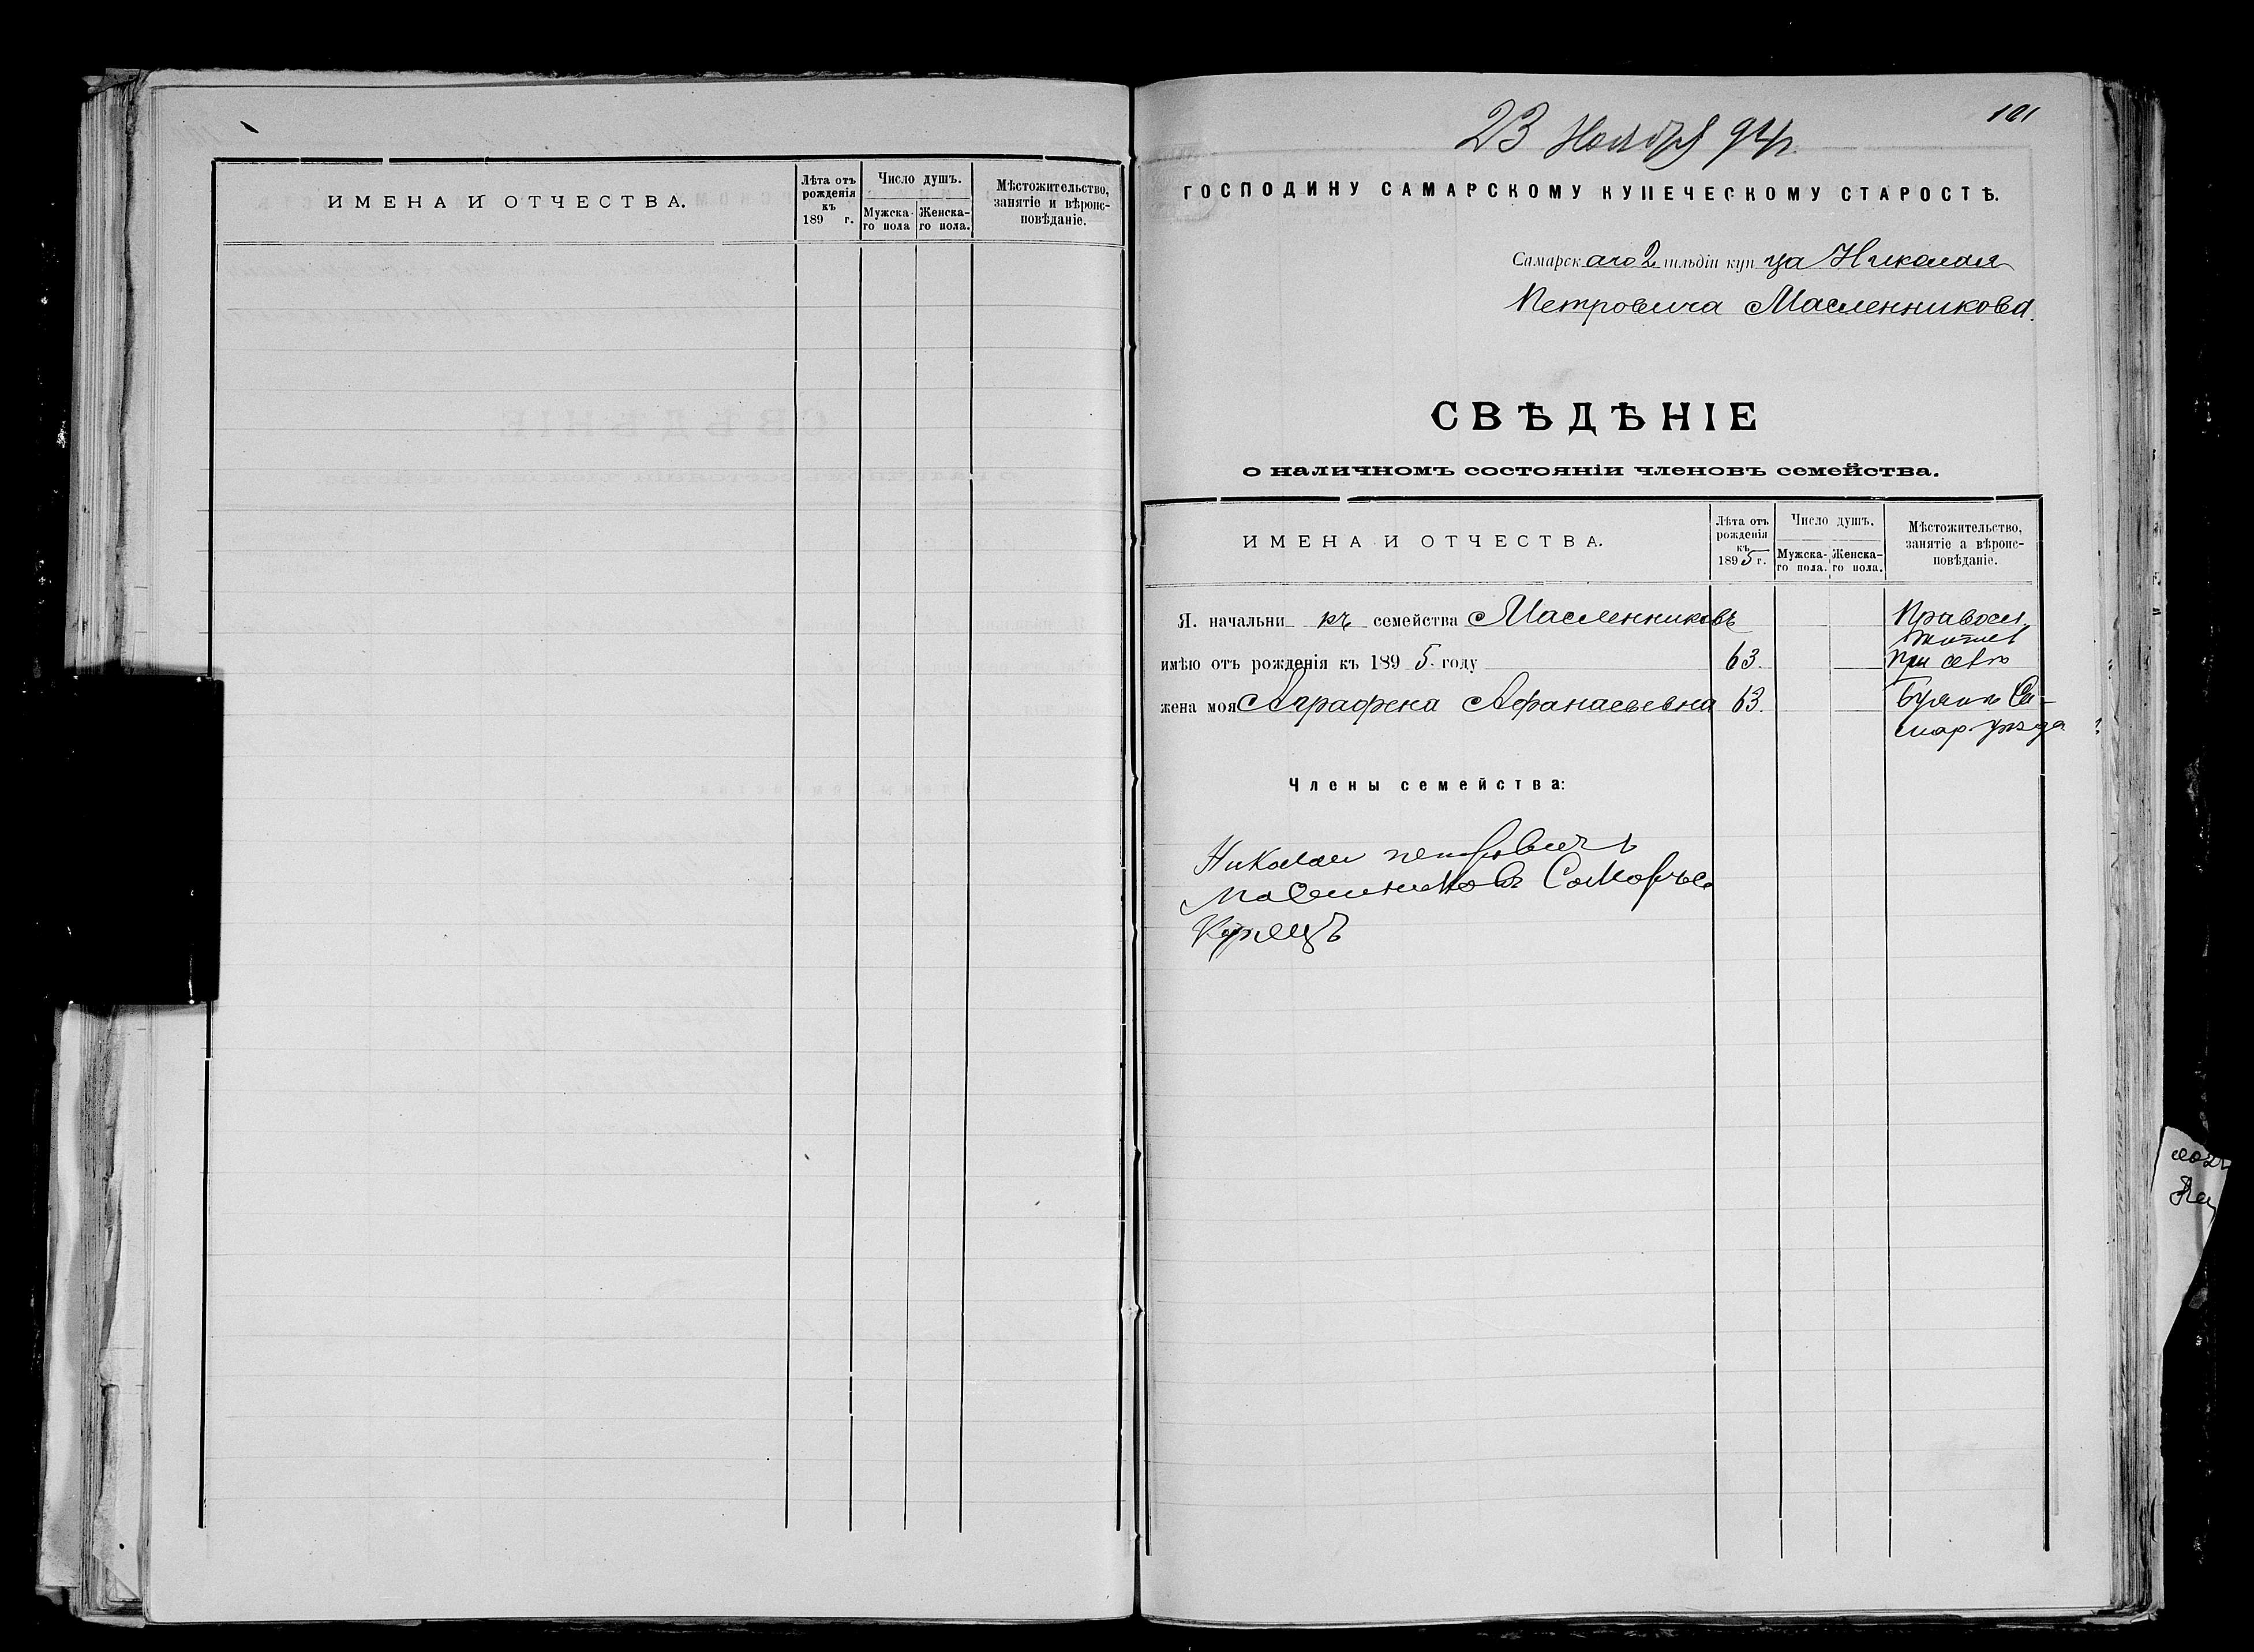 ИМЕНА И ОТЧЕСТВА.
Лѣта отъ рожденія къ 189 г.
Число душъ.
Мужска-го пола
Женска-го пола.
Мѣстожительство, занятіе и вѣроис-повѣданіе.
101
23 Ноября 94 г.
ГОСПОДИНУ САМАРСКОМУ КУПЕЧЕСКОМУ СТАРОСТѢ.
Самарскаго 2 гильдіи купца Николая
Петровича Масленникова.
СВѢДѢНІЕ
о наличномъ состояніи членовъ семейства.
ИМЕНА И ОТЧЕСТВА.
Лѣта отъ рожденія къ 1895 г.
Число душъ.
Мужска-го пола.
Женска-го пола.
Мѣстожительство, занятіе а вѣроис-повѣданіе.
Я. начальникъ семейства Масленниковъ
Правосл.
имѣю отъ рожденія къ 1895. году 63.
при селѣ
жена моя Аграфена Афанасьевна 63.
Са-
мар. уѣзда
Члены семейства:
Николаи петровичъ
Купецъ